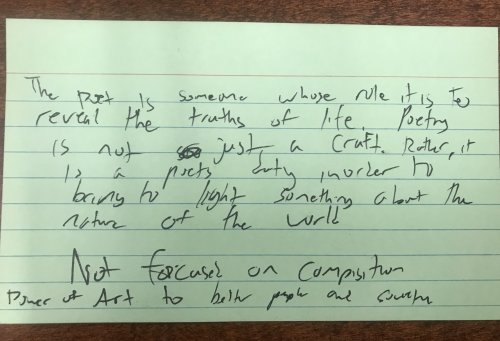 The poet is someone whose role it is to
reveal the truths of life. Poetry
is not just a craft. Rather, it
is a poets duty inorder to
bring to light something about the
nature of the world
Not focused on composition
Power of Art to better people and society